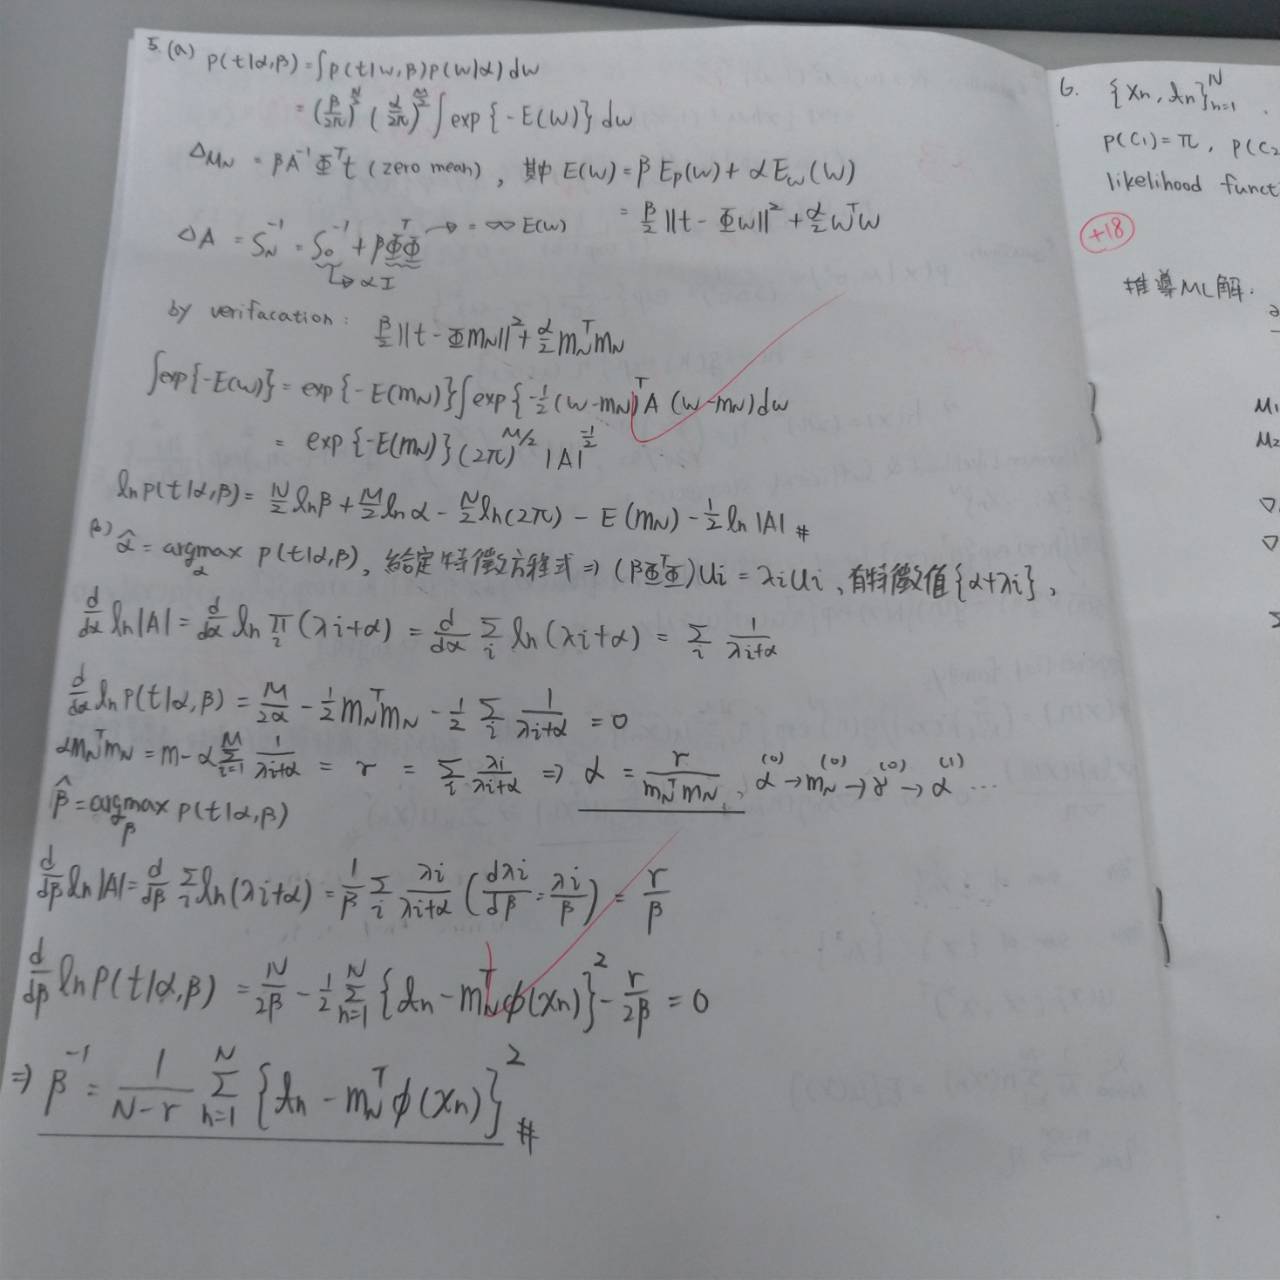 5. (a) p(t|α,β) = ∫p(t|w,β)p(w|α)dw
= (β/2π)^{N/2} (α/2π)^{M/2} ∫exp{-E(w)}dw
△ M_N = βA^{-1}Φ^T t (zero mean), 其中 E(w) = βE_D(w) + αE_w(w)
= β/2 ||t - Φw||^2 + α/2 w^T w
△ A = S_N^{-1} = S_0^{-1} + βΦ^TΦ → = ∞ E(w)
↳ αI
by verifacation: β/2 ||t - Φm_N||^2 + α/2 m_N^T m_N
∫exp{-E(w)} = exp{-E(m_N)}∫exp{-1/2 (w-m_N)^T A (w-m_N)dw
= exp{-E(m_N)}(2π)^{M/2} |A|^{-1/2}
ln p(t|α,β) = N/2 lnβ + M/2 lnα - N/2 ln(2π) - E(m_N) - 1/2 ln|A| #
(b) α̂ = argmax_α p(t|α,β), 給定特徵方程式 ⇒ (βΦ^TΦ)u_i = λ_i u_i, 有特徵值{α+λi},
d/dα ln|A| = d/dα ln Π_i (λi+α) = d/dα Σ_i ln(λi+α) = Σ_i 1/(λi+α)
d/dα ln p(t|α,β) = M/2α - 1/2 m_N^T m_N - 1/2 Σ_i 1/(λi+α) = 0
αm_N^T m_N = m - α Σ_{i=1}^M 1/(λi+α) = r = Σ_i λi/(λi+α) ⇒ α = r/(m_N^T m_N), α^{(0)} → m_N^{(0)} → γ^{(0)} → α^{(1)} ...
β̂ = argmax_β p(t|α,β)
d/dβ ln|A| = d/dβ Σ_i ln(λi+α) = 1/β Σ_i λi/(λi+α) (dλi/dβ = λi/β) = r/β
d/dβ ln p(t|α,β) = N/2β - 1/2 Σ_{n=1}^N {t_n - m_N^T φ(x_n)}^2 - r/2β = 0
⇒ β^{-1} = 1/(N-r) Σ_{n=1}^N {t_n - m_N^T φ(x_n)}^2 #
6. {x_n, t_n}_{n=1}^N
p(C_1) = π, p(C_2
likelihood funct
+18
推導ML解.
M_1
M_2